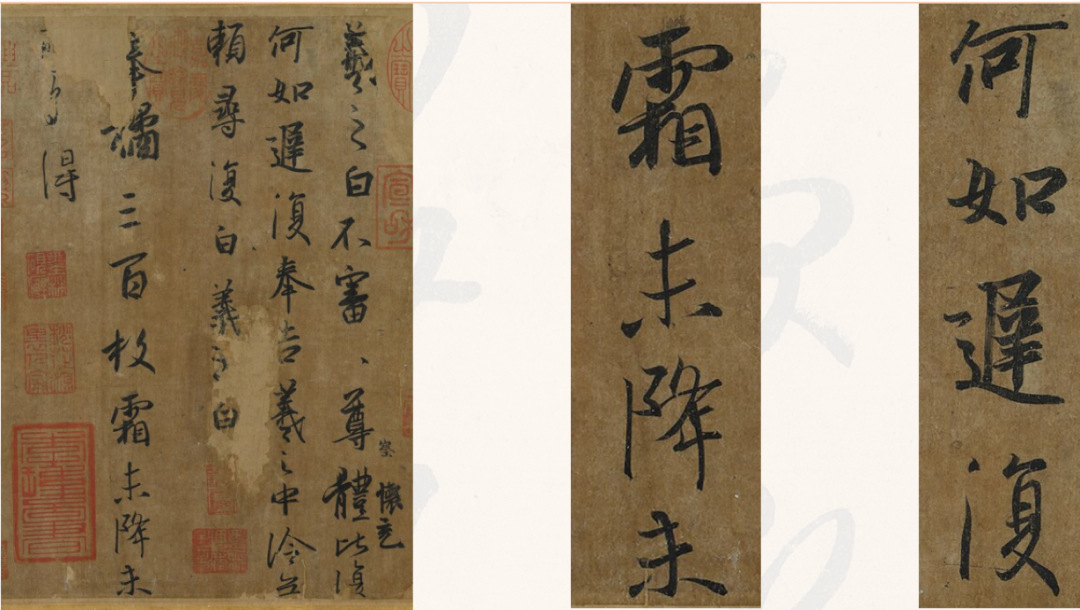 羲之白不審、尊體比復
何如遲復奉告羲之中冷無
賴尋復白羲之白
奉橘三百枚霜未降未
可多得
察
懷充
霜未降未
何如遲復